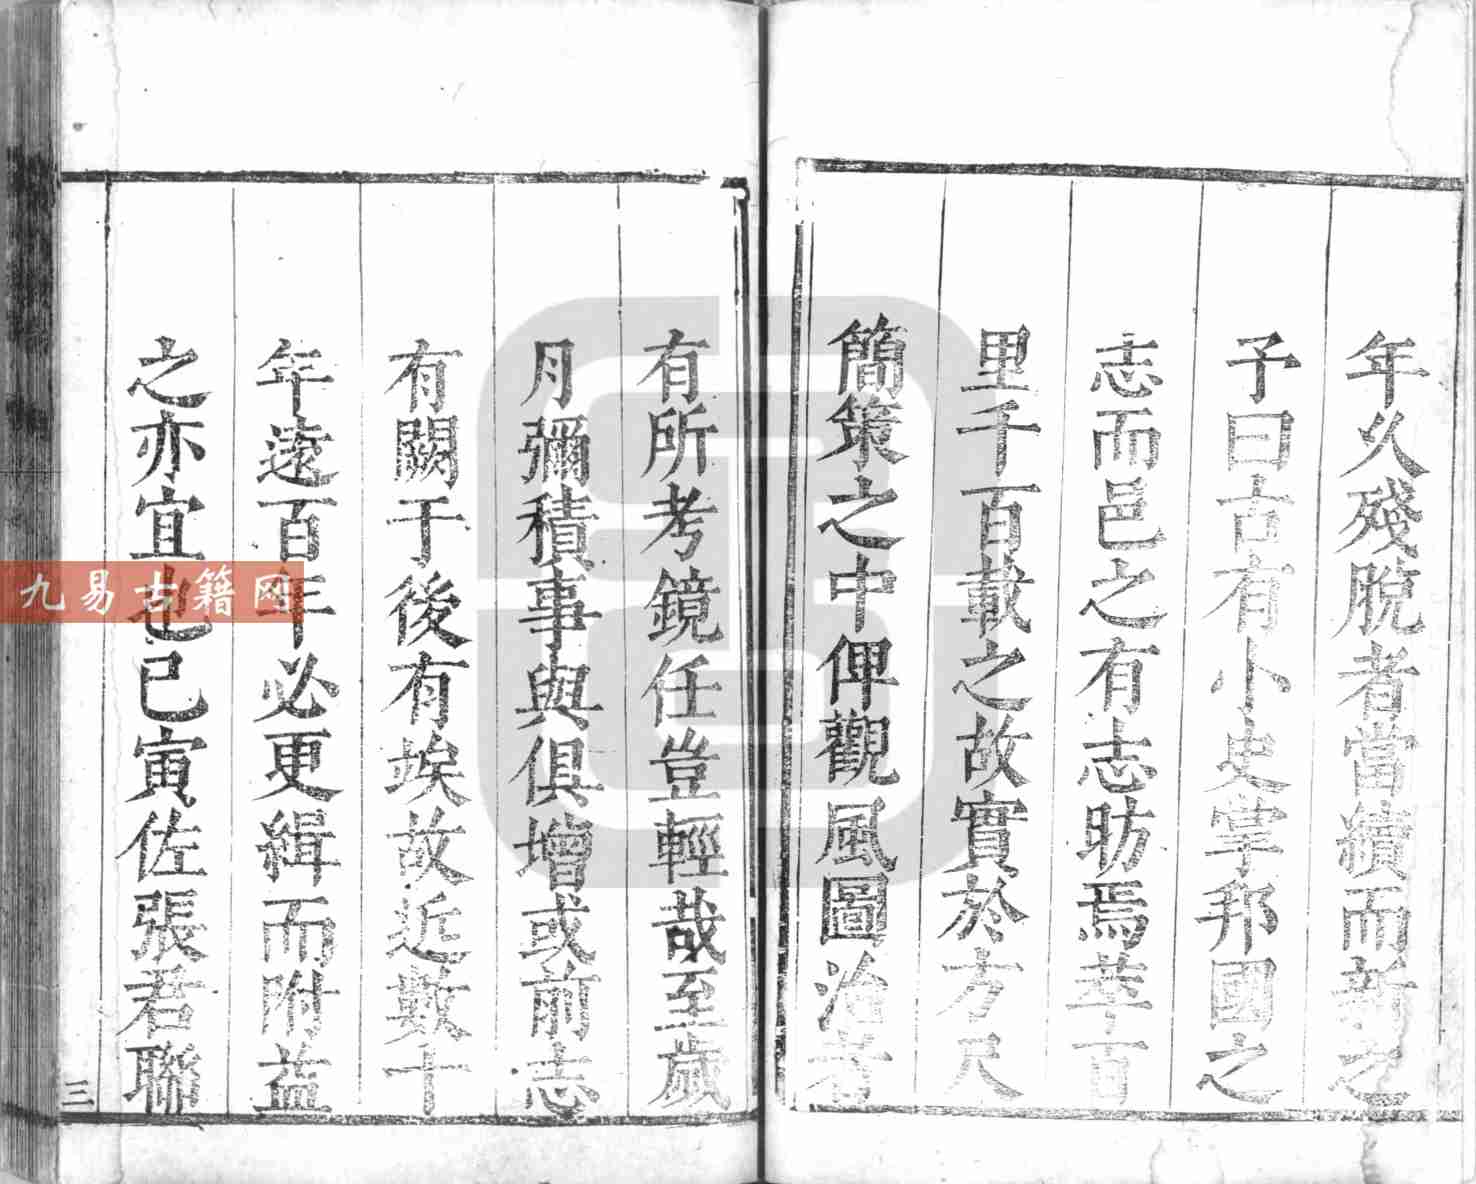 年久殘脫者當續而新之
予曰古有小史掌邦國之
志而邑之有志昉焉萃百
里千百載之故實於方尺
簡策之中俾觀風圖治者
有所考鏡任豈輕哉至歲
月彌積事與俱增或前志
有闕于後有俟故近數十
年遠百年必更緝而附益
之亦宜也已寅佐張君聯
三
九易古籍网